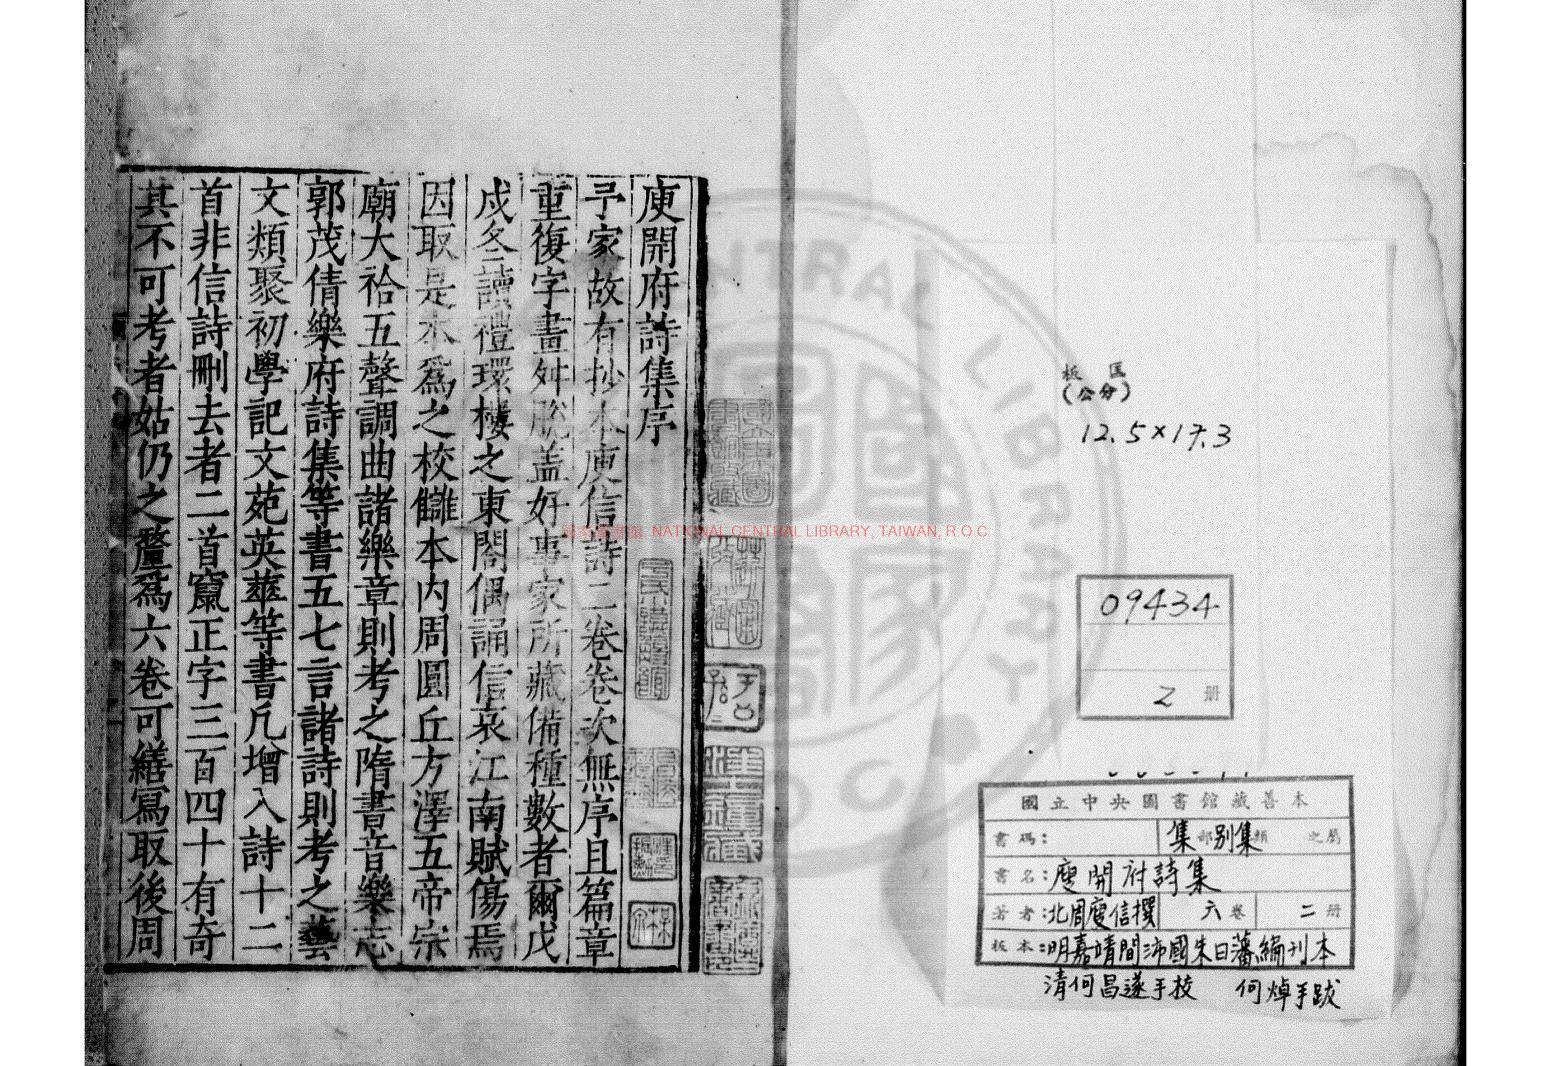 庾開府詩集序
予家故有抄本庾信詩二卷卷次無序且篇章
重復字畫舛脫盖好事家所藏備種數者爾戊
戌冬讀禮環樓之東閣偶誦信哀江南賦傷焉
因取是本爲之校讎本内周圓丘方澤五帝宗
廟大祫五聲調曲諸樂章則考之隋書音樂志
郭茂倩樂府詩集等書五七言諸詩則考之藝
文類聚初學記文苑英華等書凡增入詩十二
首非信詩刪去者二首竄正字三百四十有奇
其不可考者姑仍之釐爲六卷可繕寫取後周
板匡
(公分)
12.5×17.3
09434
2 册
國立中央圖書館藏善本
書碼： 集部別集類 之屬
書名：庾開府詩集
著者：北周庾信撰 六卷 二册
板本：明嘉靖間沛國朱曰藩編刊本
清何昌遂手校 何焯手跋
NATIONAL CENTRAL LIBRARY, TAIWAN, R.O.C